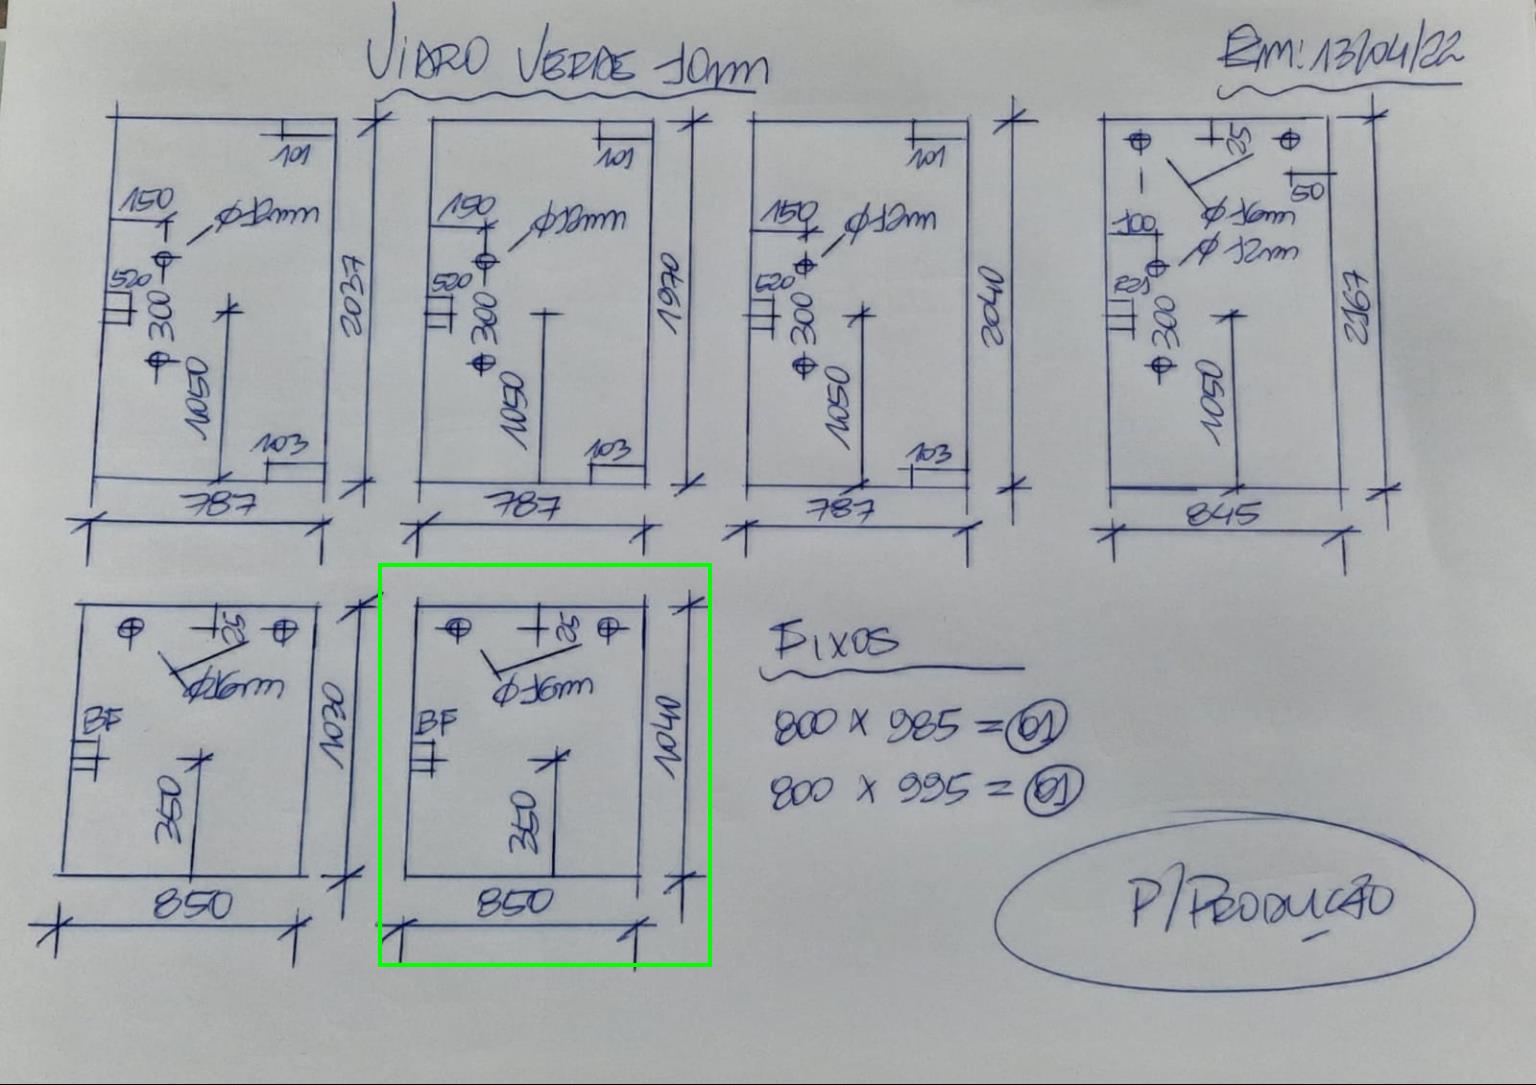 VIDRO VERDE 10mm
Em: 13/04/22
101
150
Ø12mm
520
300
1050
103
2037
787
101
150
Ø12mm
520
300
1050
103
1970
787
101
150
Ø12mm
520
300
1050
103
2040
787
25
50
Ø16mm
100
Ø12mm
300
1050
845
25
Ø16mm
BF
350
1030
850
25
Ø16mm
BF
350
1040
850
FIXOS
800 x 985 = 01
800 x 995 = 01
P/PRODUÇÃO